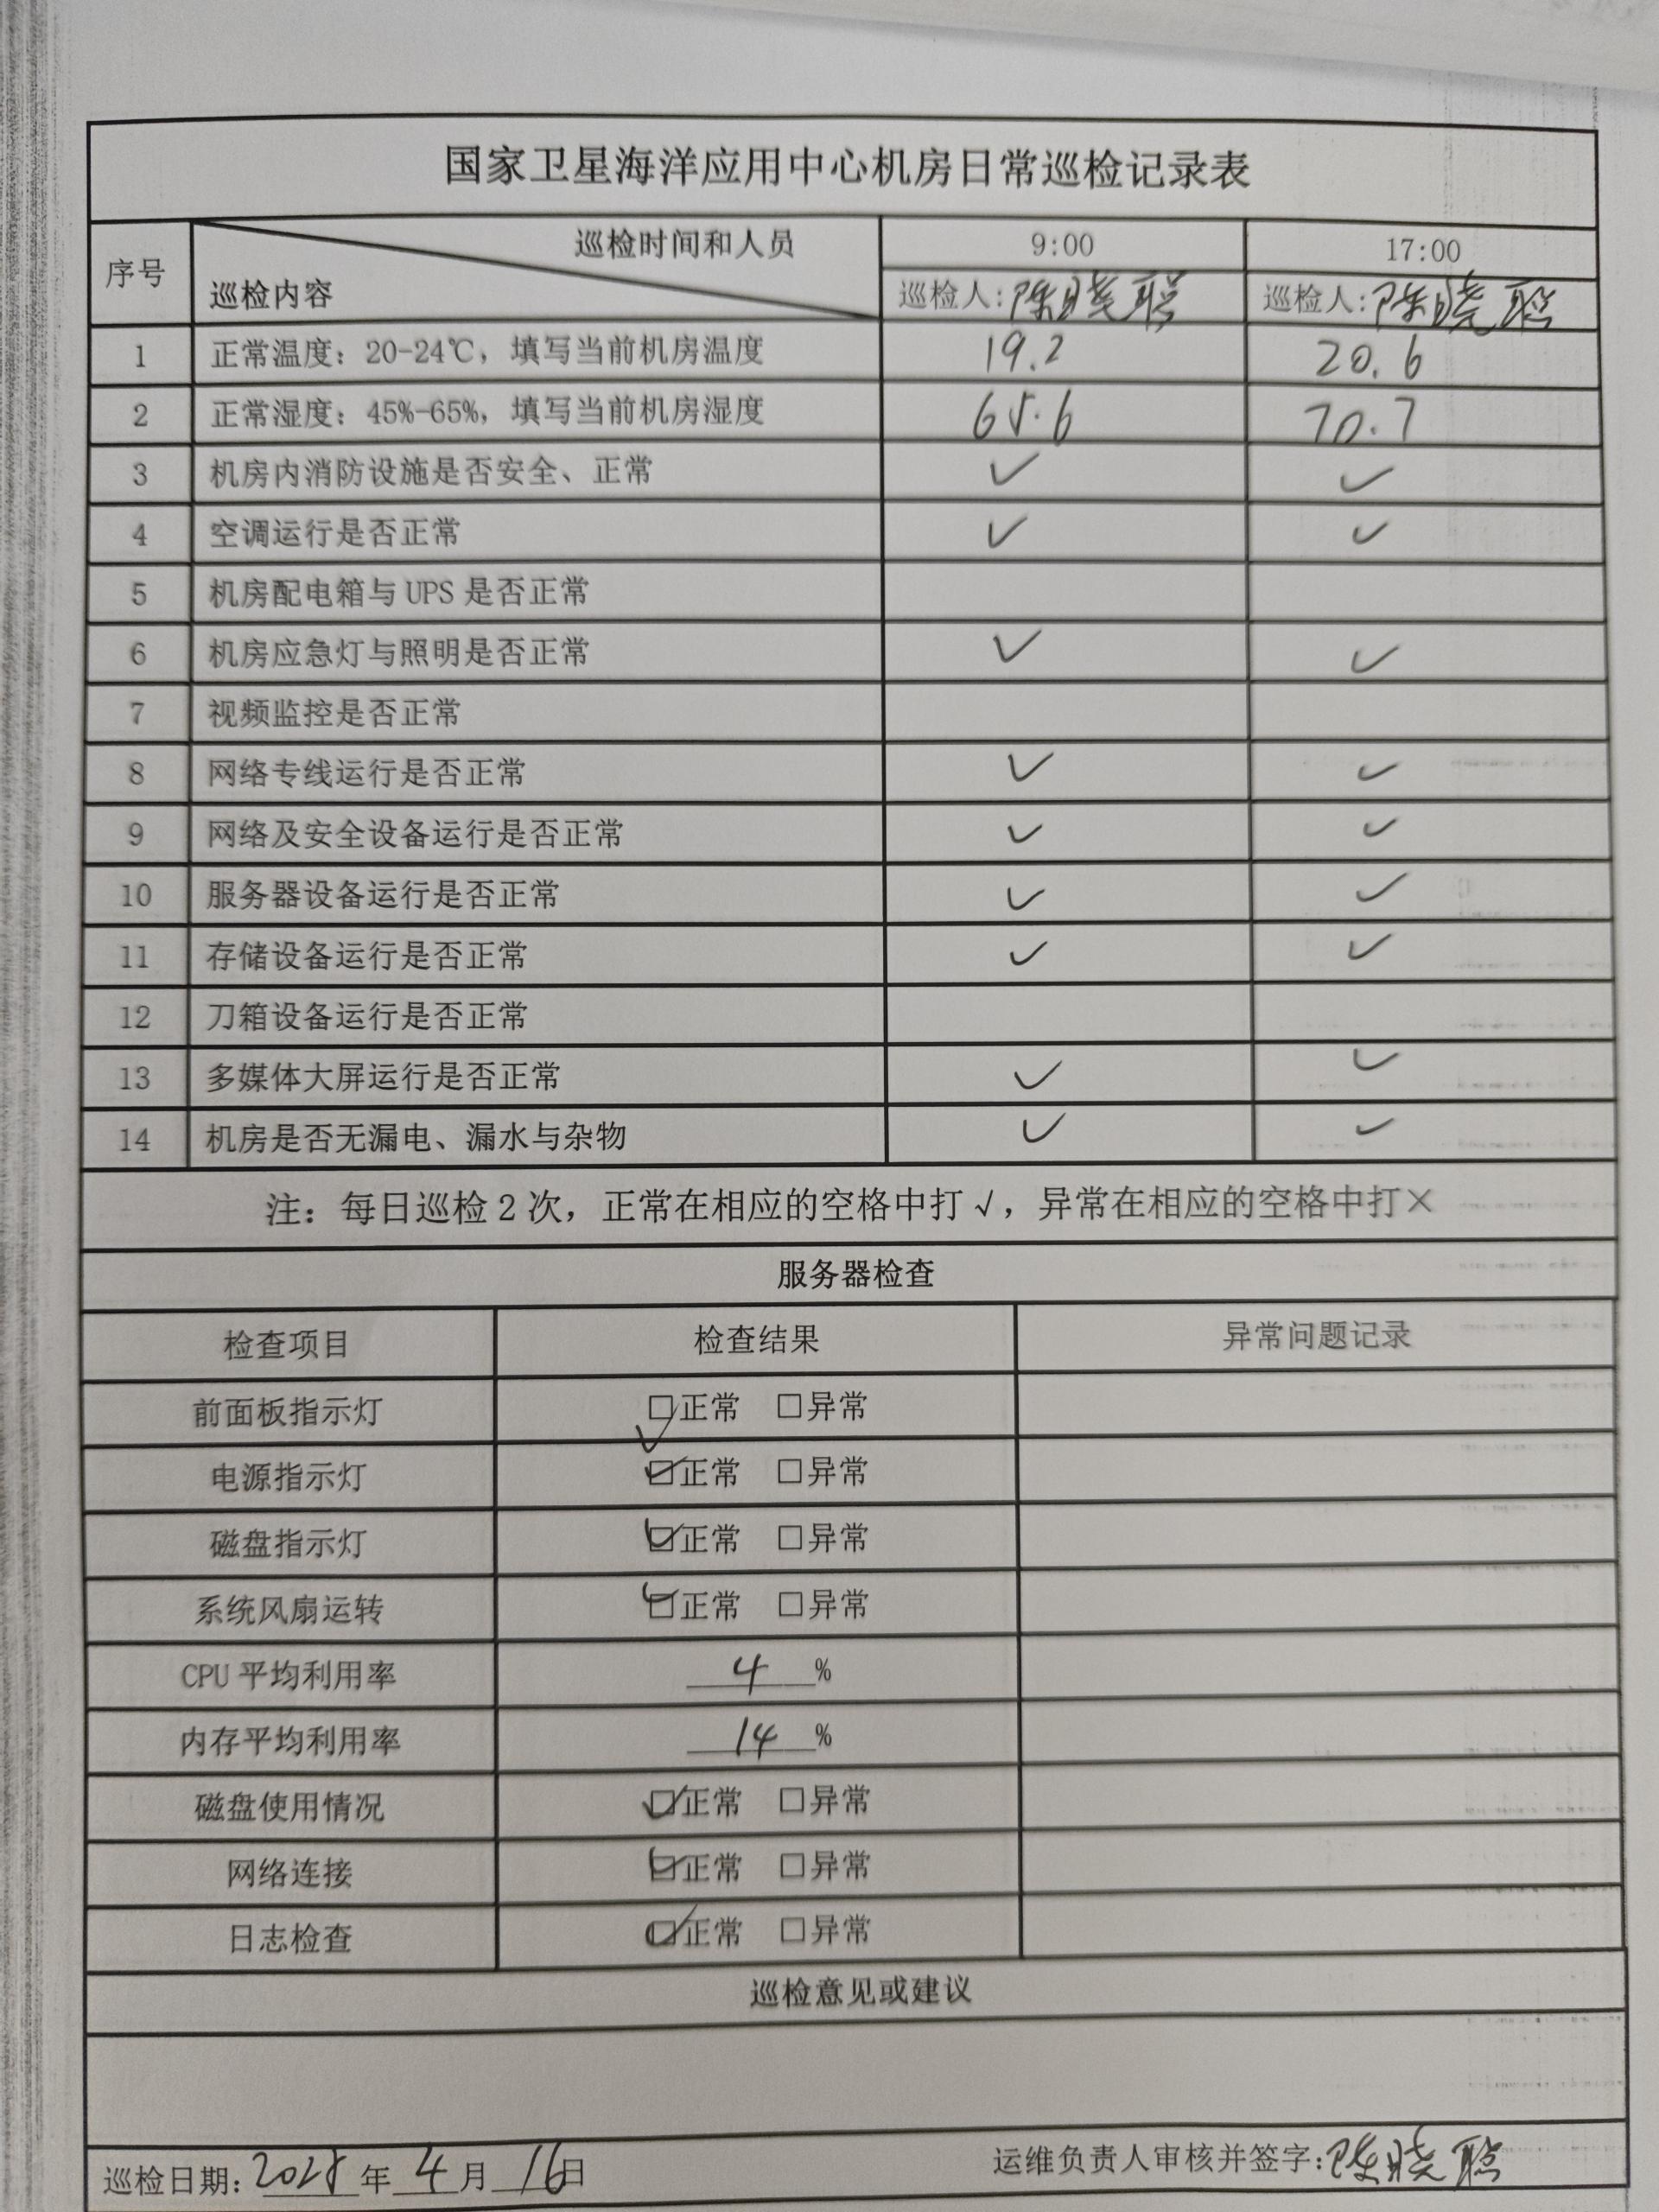 国家卫星海洋应用中心机房日常巡检记录表
序号 巡检时间和人员 巡检内容 9:00 17:00
巡检人:陈晓聪 巡检人:陈晓聪
1 正常温度：20-24℃，填写当前机房温度 19.2 20.6
2 正常湿度：45%-65%，填写当前机房湿度 65.6 70.7
3 机房内消防设施是否安全、正常 ✓ ✓
4 空调运行是否正常 ✓ ✓
5 机房配电箱与 UPS 是否正常
6 机房应急灯与照明是否正常 ✓ ✓
7 视频监控是否正常
8 网络专线运行是否正常 ✓ ✓
9 网络及安全设备运行是否正常 ✓ ✓
10 服务器设备运行是否正常 ✓ ✓
11 存储设备运行是否正常 ✓ ✓
12 刀箱设备运行是否正常
13 多媒体大屏运行是否正常 ✓ ✓
14 机房是否无漏电、漏水与杂物 ✓ ✓
注：每日巡检 2 次，正常在相应的空格中打 √，异常在相应的空格中打×
服务器检查
检查项目 检查结果 异常问题记录
前面板指示灯 ☑正常 □异常
电源指示灯 ☑正常 □异常
磁盘指示灯 ☑正常 □异常
系统风扇运转 ☑正常 □异常
CPU 平均利用率 4 %
内存平均利用率 14 %
磁盘使用情况 ☑正常 □异常
网络连接 ☑正常 □异常
日志检查 ☑正常 □异常
巡检意见或建议
巡检日期: 年 4 月 16 日 运维负责人审核并签字:陈晓聪